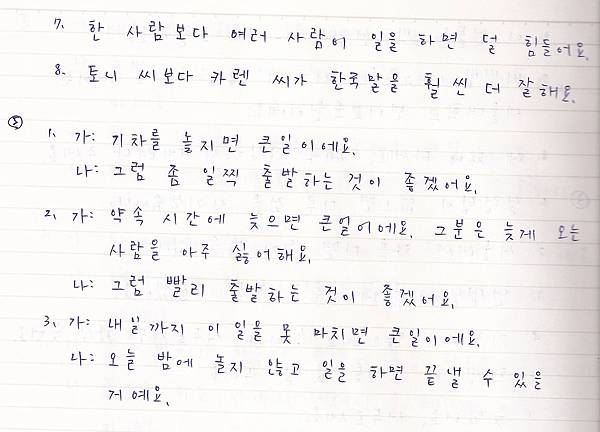 7. 한 사람보다 여러 사람이 일을 하면 덜 힘들어요.
8. 토니 씨보다 카렌 씨가 한국말을 훨씬 더 잘해요.
⑤ 1. 가: 기차를 놓지면 큰일이에요.
나: 그럼 좀 일찍 출발하는 것이 좋겠어요.
2. 가: 약속 시간에 늦으면 큰일어에요. 그분은 늦게 오는
사람을 아주 싫어해요.
나: 그럼 빨리 출발하는 것이 좋겠어요.
3. 가: 내일까지 이 일을 못 마치면 큰일이에요.
나: 오늘 밤에 놀지 않고 일을 하면 끝낼 수 있을
거예요.